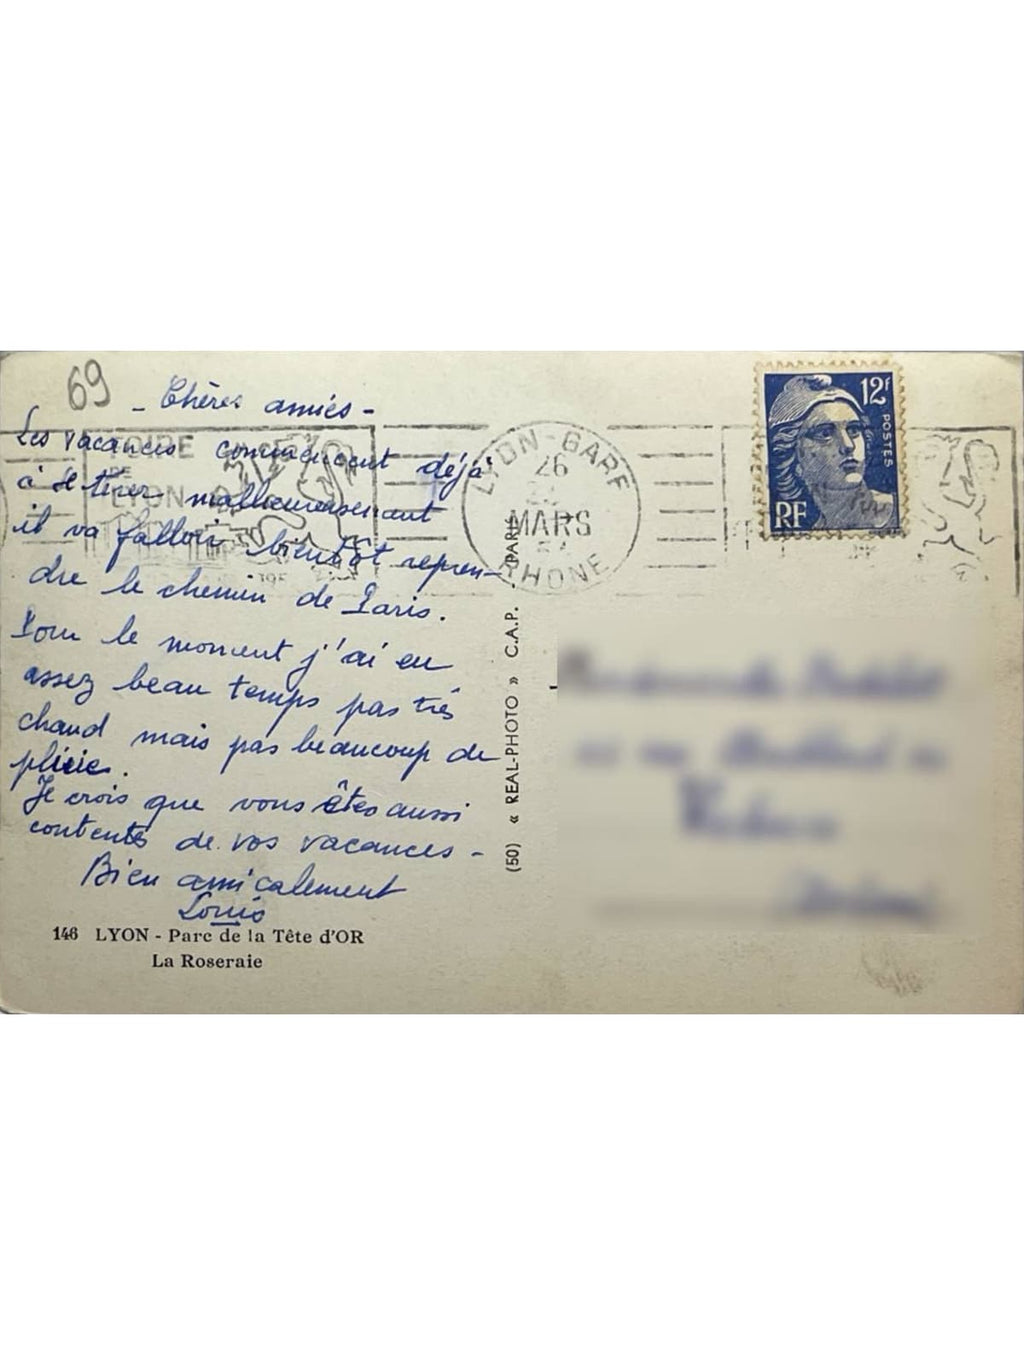 69
- Chères amies -
Les vacances commencent déjà
à se tirer malheureusement
il va falloir bientôt repren-
dre le chemin de Paris.
Pour le moment j'ai eu
assez beau temps pas très
chaud mais pas beaucoup de
pluie.
Je crois que vous êtes aussi
contentes de vos vacances -
Bien amicalement
Louis
146 LYON - Parc de la Tête d'OR
La Roseraie
(50) « REAL-PHOTO » C.A.P. - PARIS
FOIRE
DE
LYON
LYON-GARE
26
MARS
RHONE
12f
POSTES
RF